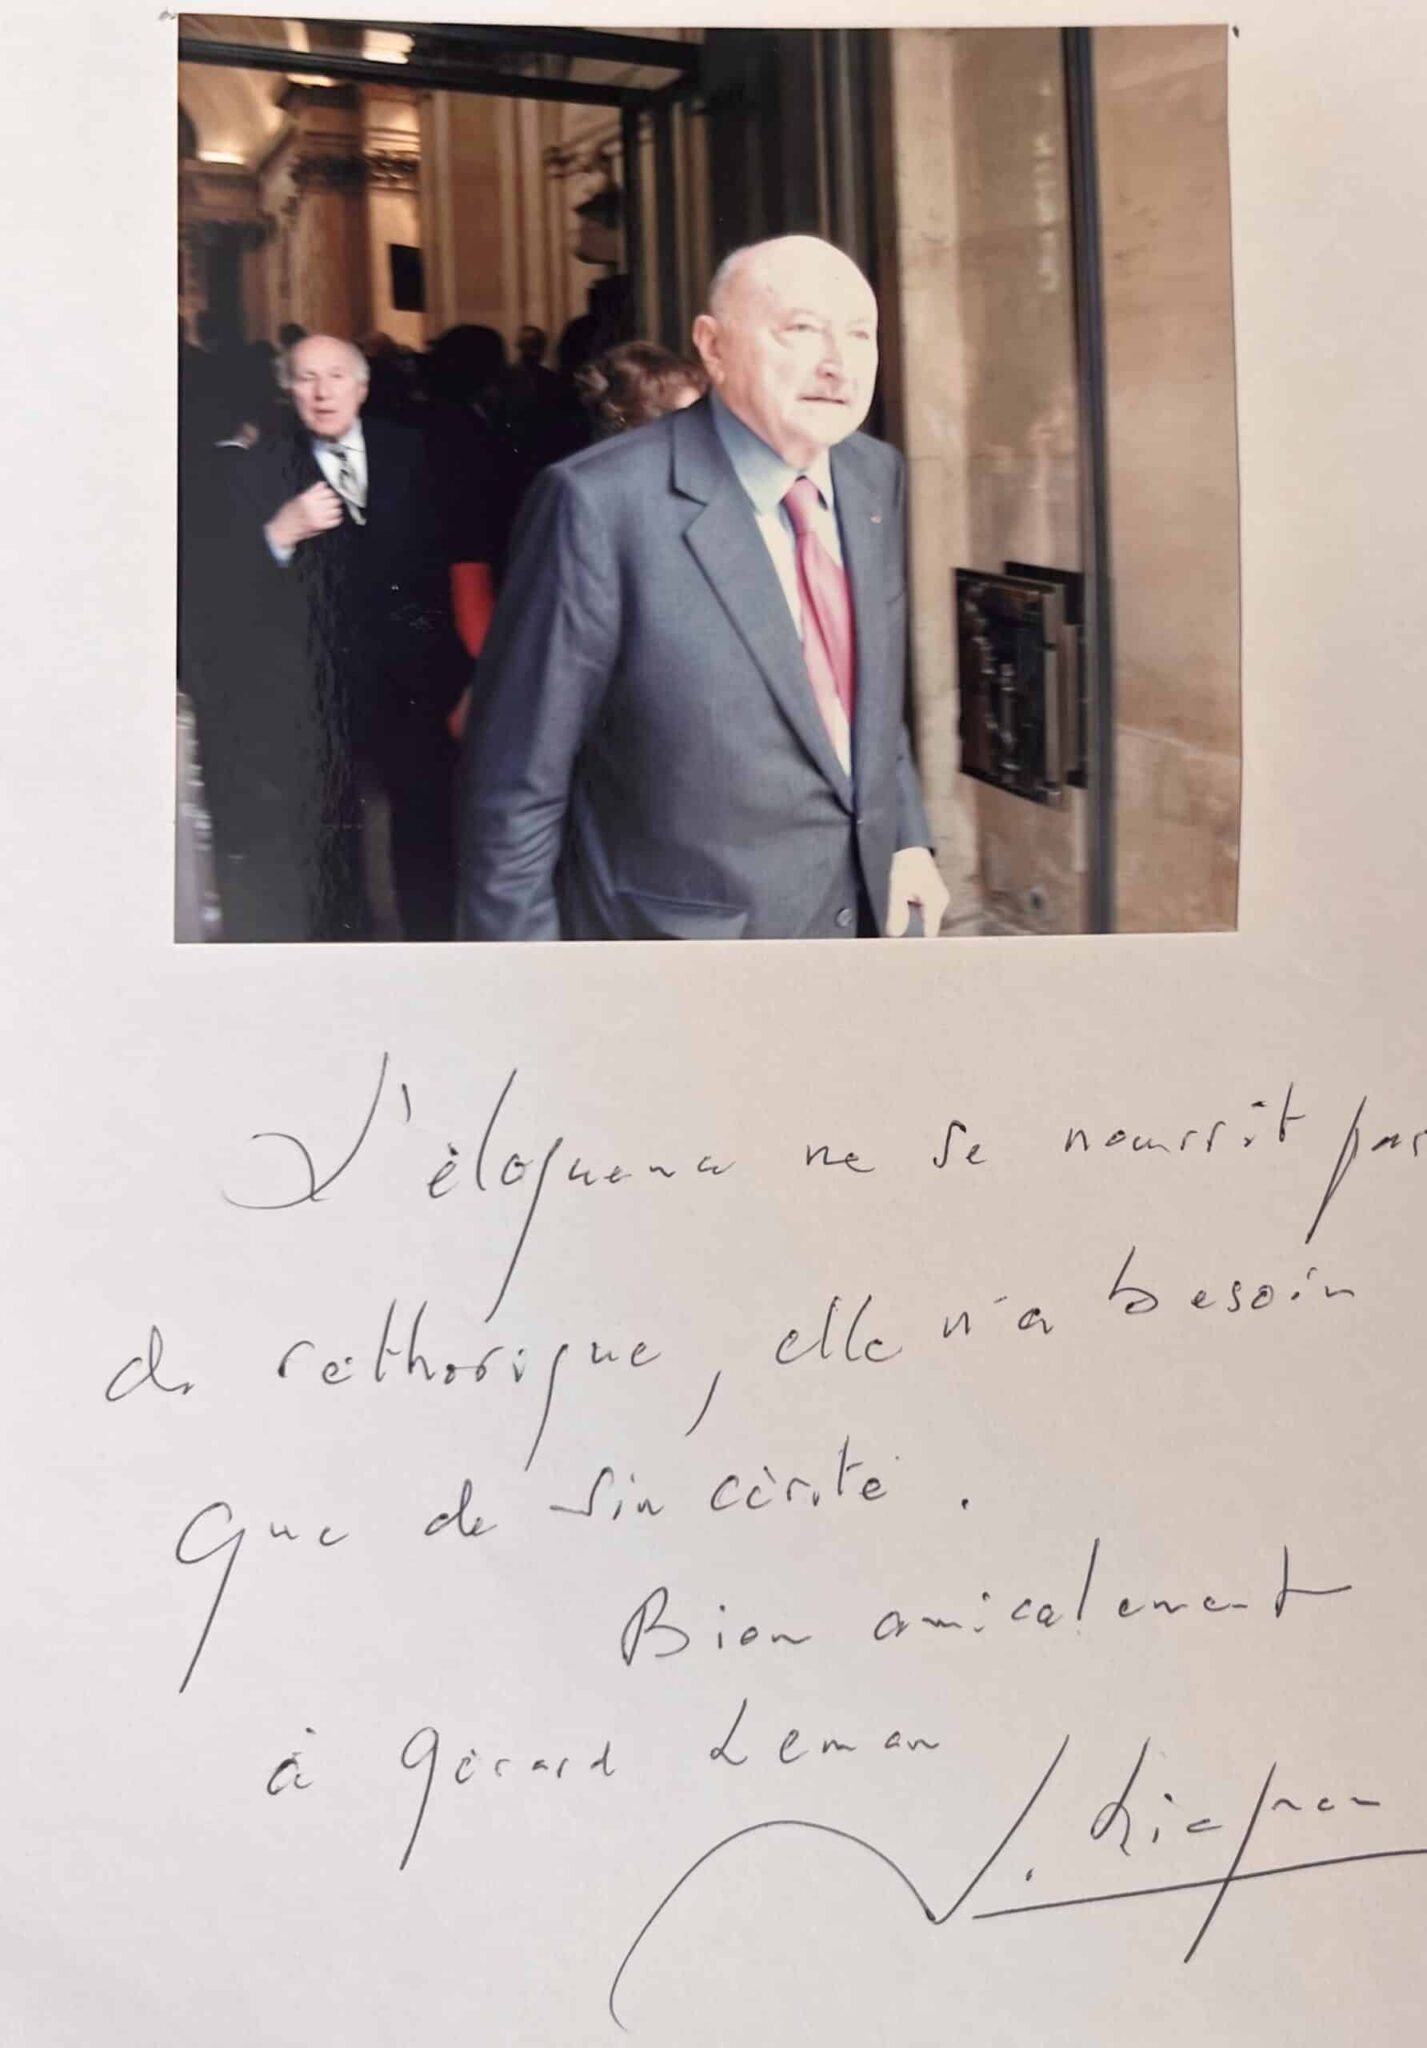 L'éloquence ne se nourrit pas
de réthorique, elle n'a besoin
que de sincérité.
Bien amicalement
à Gérard Leman